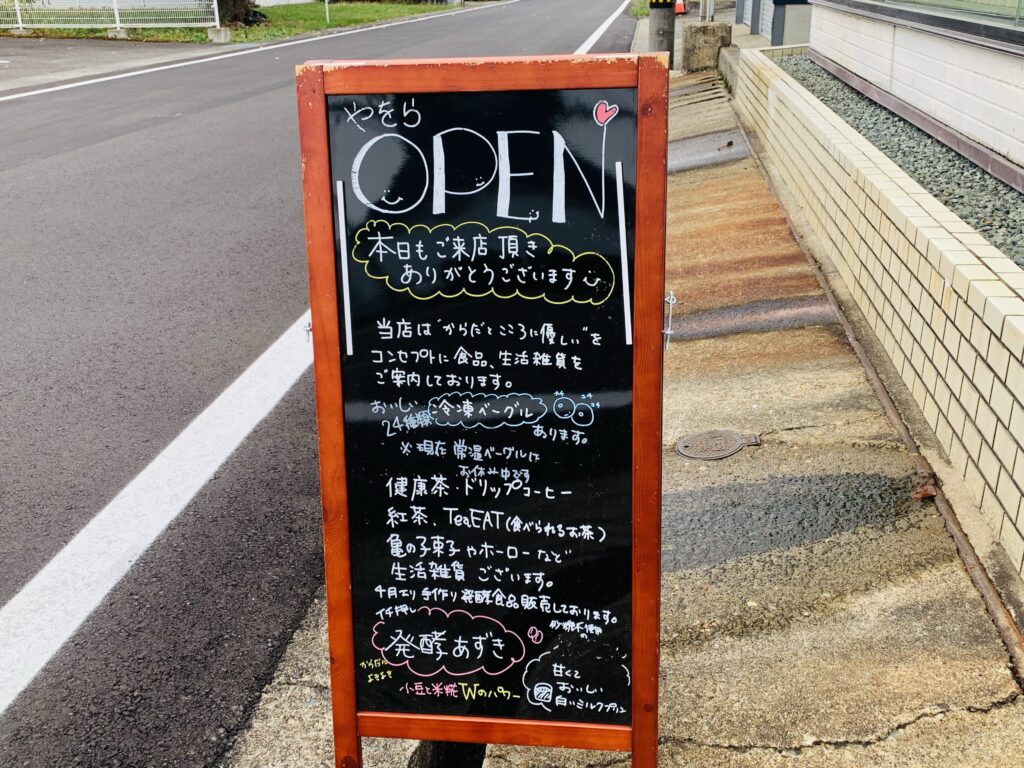 やをら
OPEN
本日もご来店頂き
ありがとうございます
当店は"からだとこころに優しい"を
コンセプトに食品、生活雑貨を
ご案内しております。
おいしい
24種類 冷凍ベーグル
あります。
※現在 常温ベーグルは
お休み中です
健康茶・ドリップコーヒー
紅茶、TeaEAT(食べられるお茶)
亀の子束子やホーローなど
生活雑貨 ございます。
4月より手作り発酵食品販売しております。
イチ押し
発酵あずき
砂糖不使用
の
からだに
小豆と米糀 Wのパワー
甘くて
おいしい
白いミルクプリン